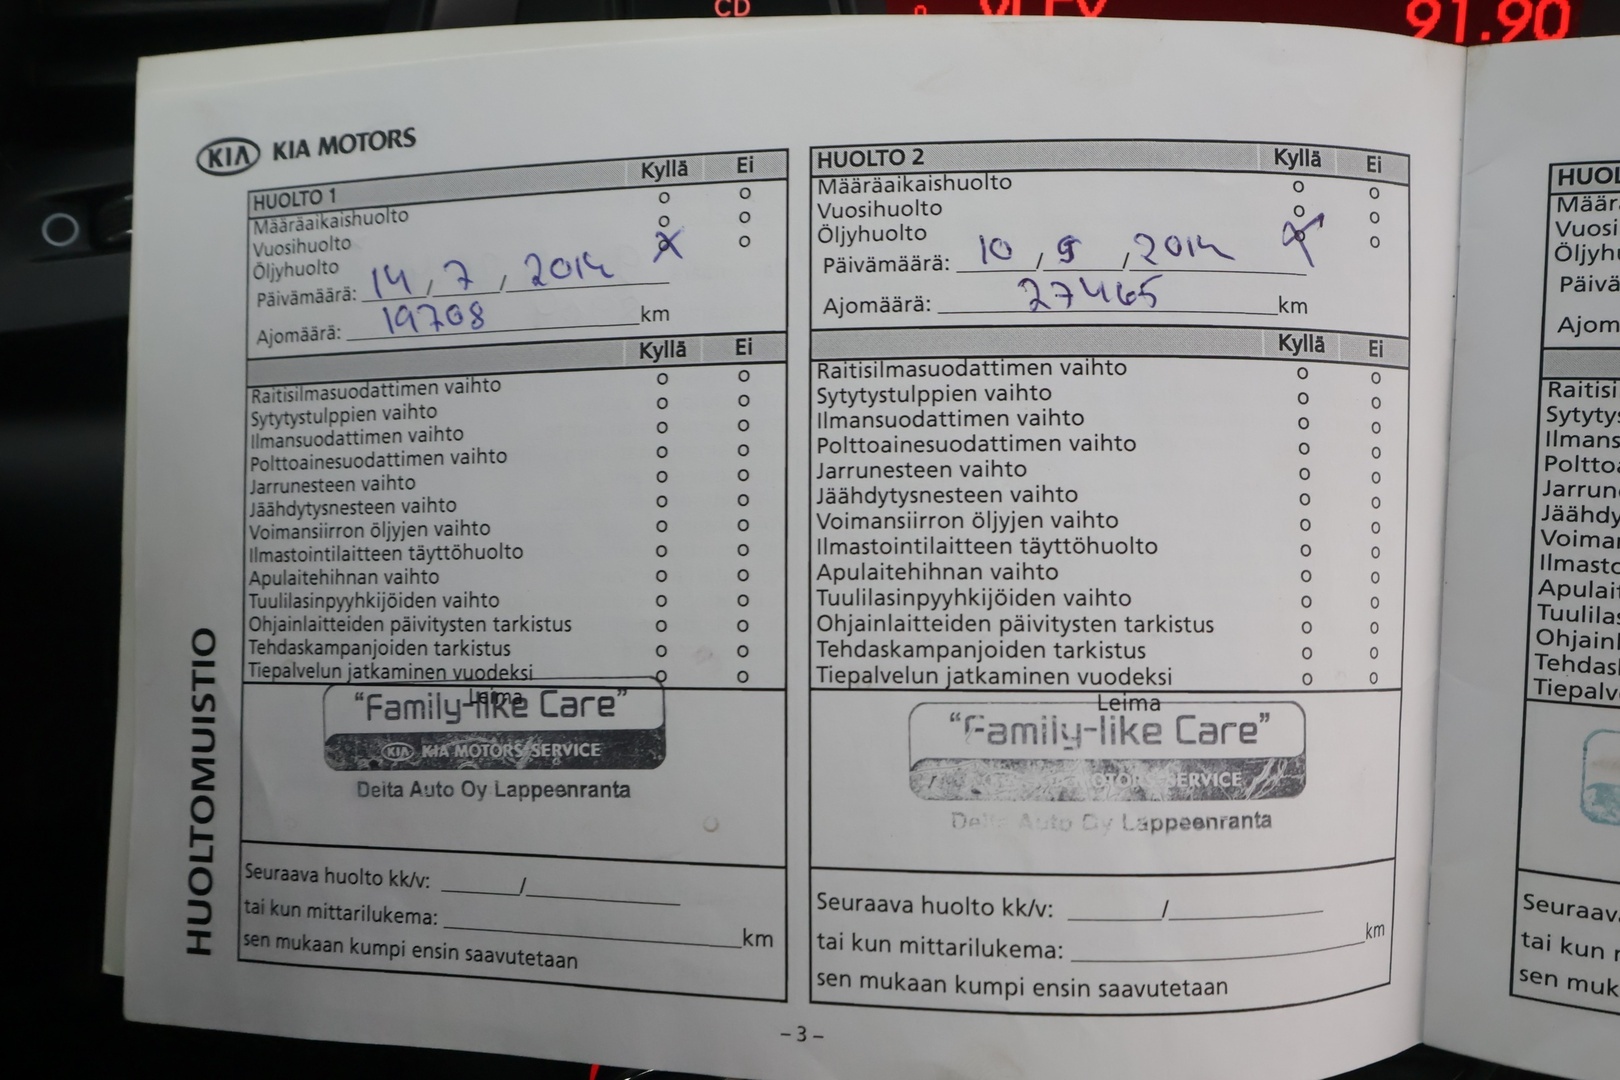 CD
91.90
KIA KIA MOTORS
HUOLTOMUISTIO
HUOLTO 1 Kyllä Ei
Määräaikaishuolto o o
Vuosihuolto o o
Öljyhuolto X o
Päivämäärä: 14 / 7 / 2014
Ajomäärä: 19708 km
Kyllä Ei
Raitisilmasuodattimen vaihto o o
Sytytystulppien vaihto o o
Ilmansuodattimen vaihto o o
Polttoainesuodattimen vaihto o o
Jarrunesteen vaihto o o
Jäähdytysnesteen vaihto o o
Voimansiirron öljyjen vaihto o o
Ilmastointilaitteen täyttöhuolto o o
Apulaitehihnan vaihto o o
Tuulilasinpyyhkijöiden vaihto o o
Ohjainlaitteiden päivitysten tarkistus o o
Tehdaskampanjoiden tarkistus o o
Tiepalvelun jatkaminen vuodeksi o o
Leima
"Family-like Care"
KIA KIA MOTORS SERVICE
Delta Auto Oy Lappeenranta
Seuraava huolto kk/v: ______/______
tai kun mittarilukema: ______ km
sen mukaan kumpi ensin saavutetaan
HUOLTO 2 Kyllä Ei
Määräaikaishuolto o o
Vuosihuolto o o
Öljyhuolto X o
Päivämäärä: 10 / 9 / 2014
Ajomäärä: 27465 km
Kyllä Ei
Raitisilmasuodattimen vaihto o o
Sytytystulppien vaihto o o
Ilmansuodattimen vaihto o o
Polttoainesuodattimen vaihto o o
Jarrunesteen vaihto o o
Jäähdytysnesteen vaihto o o
Voimansiirron öljyjen vaihto o o
Ilmastointilaitteen täyttöhuolto o o
Apulaitehihnan vaihto o o
Tuulilasinpyyhkijöiden vaihto o o
Ohjainlaitteiden päivitysten tarkistus o o
Tehdaskampanjoiden tarkistus o o
Tiepalvelun jatkaminen vuodeksi o o
Leima
"Family-like Care"
MOTORS SERVICE
Delta Auto Oy Lappeenranta
Seuraava huolto kk/v: ______/______
tai kun mittarilukema: ______ km
sen mukaan kumpi ensin saavutetaan
- 3 -
HUOL
Määrä
Vuosi
Öljyh
Päivä
Ajom
Raitisi
Sytyty
Ilmans
Poltto
Jarrun
Jäähdy
Voima
Ilmasto
Apulai
Tuulila
Ohjain
Tehdas
Tiepalv
Seuraav
tai kun
sen muk